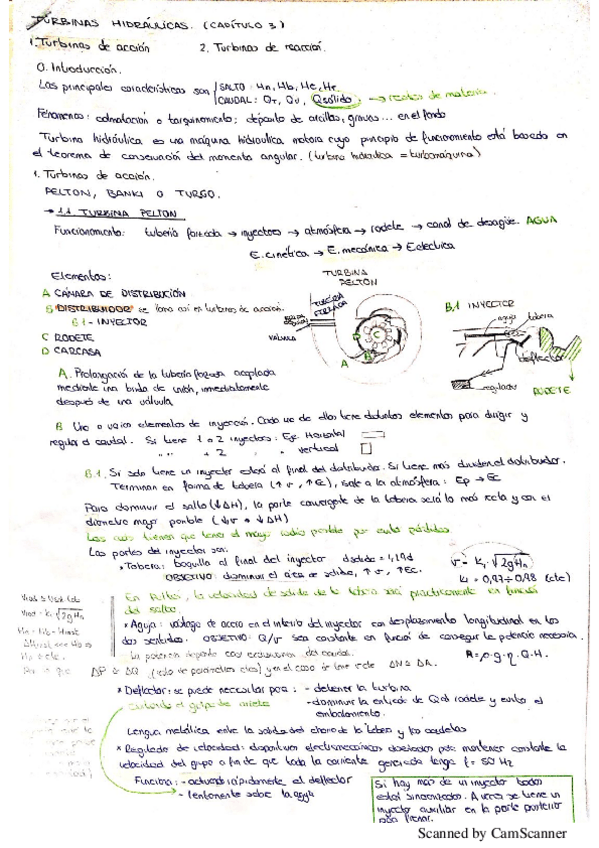 TURBINAS HIDRÁULICAS. (CAPÍTULO 3)
1. Turbinas de acción 2. Turbinas de reacción.
0. Introducción.
Las principales características son SALTO: Hn, Hb, He, Hr
CAUDAL: QT, Qu, Qsólido → restos de materia.
Fenómenos: colmatación o tarquinamiento: depósito de arcillas, gravas... en el fondo
Turbina hidráulica es una máquina hidráulica motora cuyo principio de funcionamiento está basado en
el teorema de conservación del momento angular. (turbina hidráulica = turbomáquina)
1. Turbinas de acción.
PELTON, BANKI O TURGO.
→ 1.1. TURBINA PELTON
Funcionamiento: tubería forzada → inyectores → atmósfera → rodete → canal de desagüe. AGUA
E. cinética → E. mecánica → E. eléctrica
Elementos:
A CÁMARA DE DISTRIBUCIÓN
B DISTRIBUIDOR se llama así en turbinas de acción.
B.1 - INYECTOR
C RODETE
D CARCASA
TURBINA PELTON
TUBERÍA FORZADA
VÁLVULA
A
B
C
D
B.1 INYECTOR
aguja
tobera
deflector
regulador
RODETE
A. Prolongación de la tubería forzada acoplada
mediante una brida de unión, inmediatamente
después de una válvula
B Uno o varios elementos de inyección. Cada uno de ellos tiene distintos elementos para dirigir y
regular el caudal. Si tiene 1 o 2 inyectores: Eje Horizontal
" " + 2 " vertical
B.1. Si solo tiene un inyector estará al final del distribuidor. Si tiene más dividen el distribuidor.
Terminan en forma de tobera (↑v, ↑Ec), sale a la atmósfera: Ep → Ec
Para disminuir el salto (↓ΔH), la parte convergente de la tobera será lo más recta y con el
diámetro mayor posible (↓v → ↓ΔH)
Las partes del inyector son:
* Tobera: boquilla al final del inyector
OBJETIVO: disminuir el área de salida, ↑v, ↑Ec.
v = k₁ √2gHn
k₁ = 0,97 ÷ 0,98 (cte)
En Pelton, la velocidad de salida de la tobera será prácticamente en función
del salto.
* Aguja: vástago de acero en el interior del inyector con desplazamiento longitudinal en los
dos sentidos. OBJETIVO: Q/v sea constante en función de conseguir la potencia necesaria.
* Deflector: se puede necesitar para: - detener la turbina
- disminuir la entrada de Q al rodete y evita el
embalamiento.
evitando el golpe de ariete
Lengua metálica entre la salida del chorro de la tobera y las cazoletas
* Regulador de velocidad: dispositivos electromecánicos diseñados para mantener constante la
velocidad del grupo a fin de que toda la corriente generada tenga f = 50 Hz
Funciona: - actuando rápidamente el deflector
- lentamente sobre la aguja
Si hay más de un inyector todos
están sincronizados. A veces se tiene un
inyector auxiliar en la parte posterior
para frenar.
Scanned by CamScanner